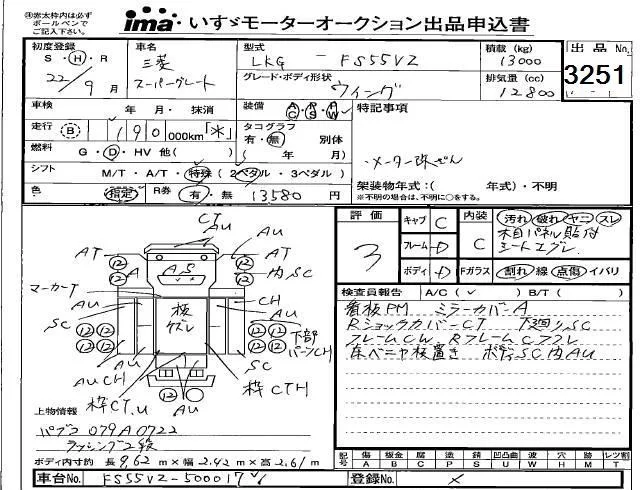 ㊟赤太枠内は必ず
ボールペンで
ご記入下さい。
ima いすゞモーターオークション出品申込書
初度登録
S・H・R
22/9月
車名
三菱
スーパーグレート
型式
LKG - FS55VZ
積載(kg)
13000
出品No.
3251
グレード・ボディ形状
ウィング
排気量(cc)
12800
車検 年 月・抹消
装備 AC PS PW
特記事項
走行 (B) 190 000km「*」
タコグラフ
有・無 別体
( 年 月)
燃料 G・D・HV 他( )
・メーター改ざん
シフト M/T・A/T・特殊(2ペダル・3ペダル)
色 指定 R券 有・無 13580円
架装物年式:( 年式)・不明
※不明の場合は、不明に○をする。
評価
3
キャブ C
フレーム D
ボディ D
内装 C
汚れ 破れ ヤニ スレ
木目パネル貼付
シートエグレ
Fガラス 割れ・線・点傷・イバリ
検査員報告 A/C(✓) B/T( )
看板PM ミラーカバーA
RショックカバーCT 下廻りSC
フレームCW RフレームCフフレ
床ベニヤ板置き ボディSC内AU
CT
AU
AT
AU
AT
12 12
A
AS
12 12
内SC
マーカーT
AU
CH
AU
SC
板
ズレ
12 12 12 12
下部
パーツCH
AU
CH
AU
SC
枠CT.U
AU
枠CTH
12 12
上物情報
パブコ 079A0722
ラッシング2段
ボディ内寸約 長9.62m×幅2.42m×高2.61m
記号 傷A 板金B 腐C 塗P 錆S 凹凸曲U 波W 穴H 跡M テカT レツ割T
車台No. FS55VZ-500017
登録No. ×